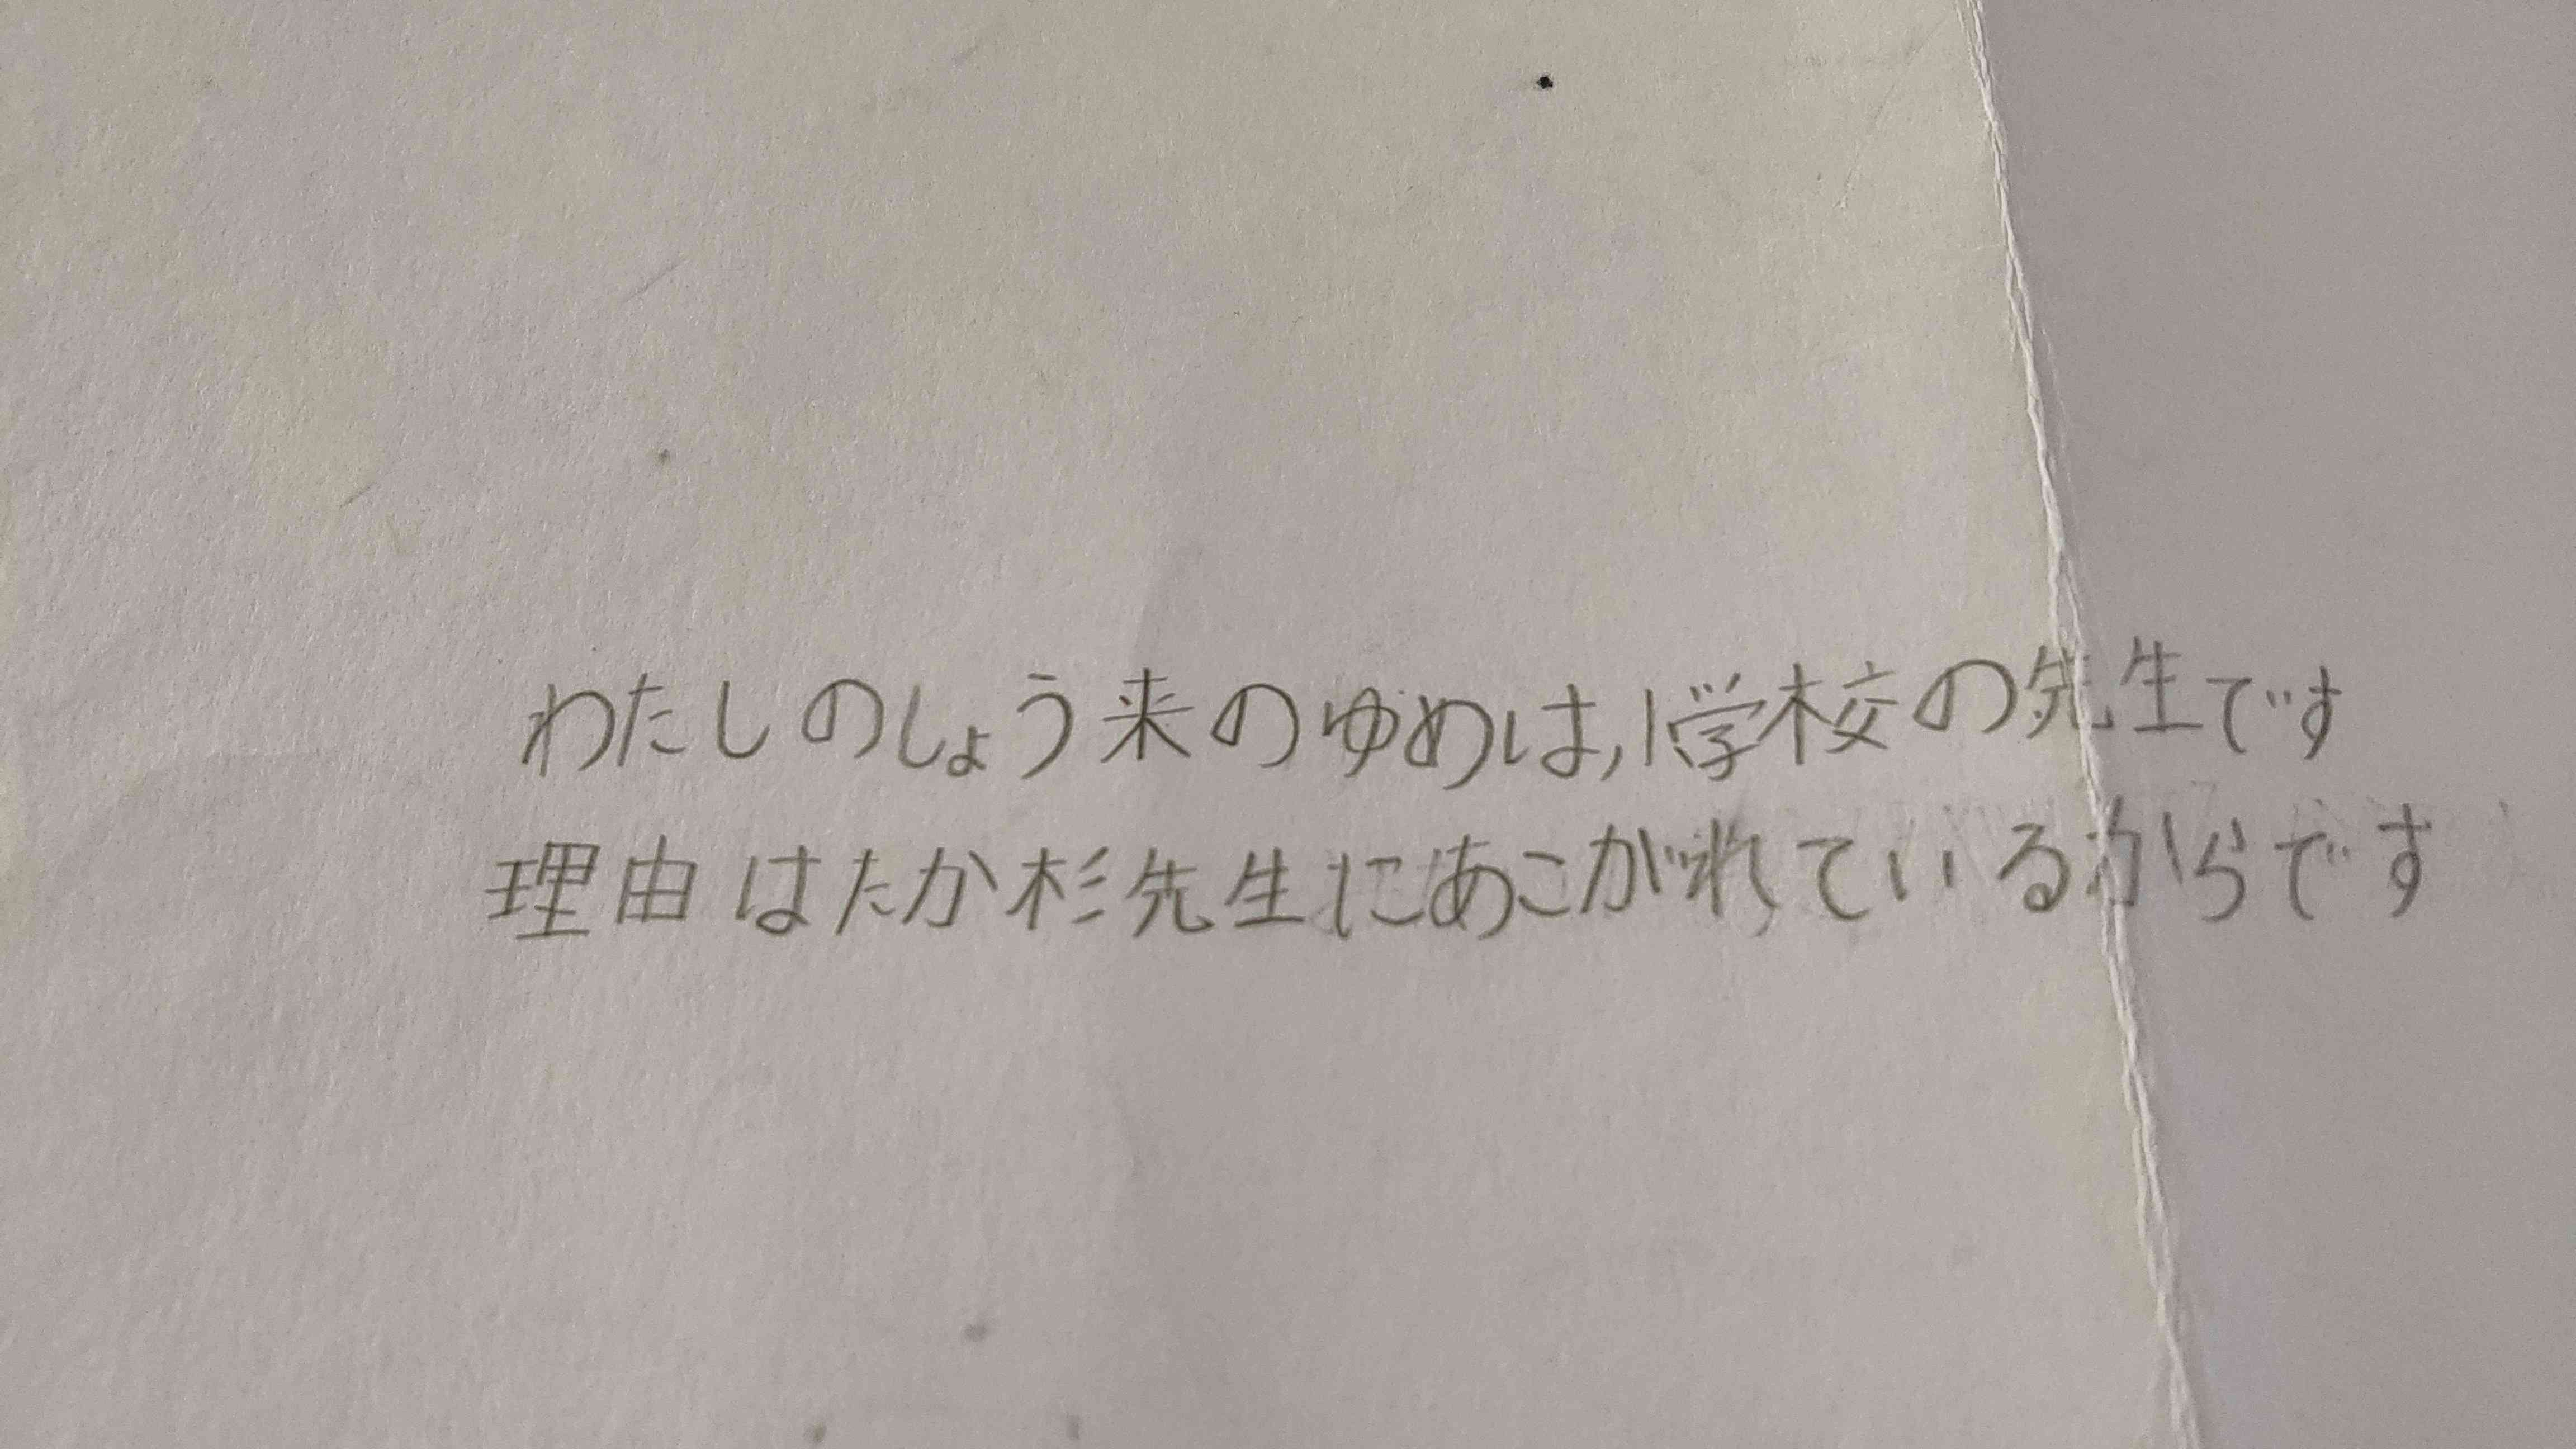 わたしのしょう来のゆめは,小学校の先生です
理由はたか杉先生にあこがれているからです